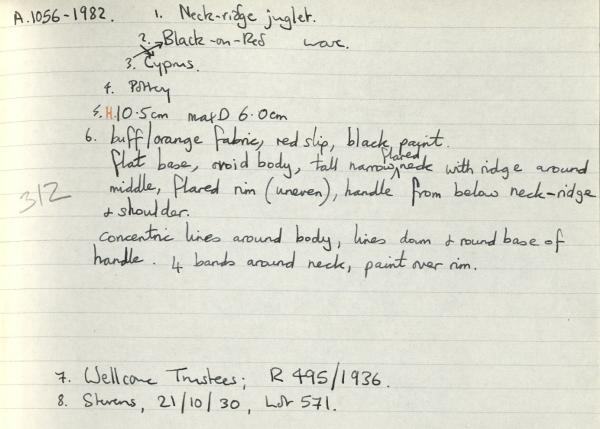 A.1056-1982.    1. Neck-ridge juglet.
2. Black-on-Red ware.
3. Cyprus.
4. Pottery
5. H.10.5cm max D 6.0cm
6. buff/orange fabric, red slip, black paint.
flat base, ovoid body, tall narrow, flared neck with ridge around
312 middle, flared rim (uneven), handle from below neck-ridge
& shoulder.
concentric lines around body, lines down & round base of
handle. 4 bands around neck, paint over rim.
7. Wellcome Trustees; R 495/1936.
8. Stevens, 21/10/30, Lot 571.